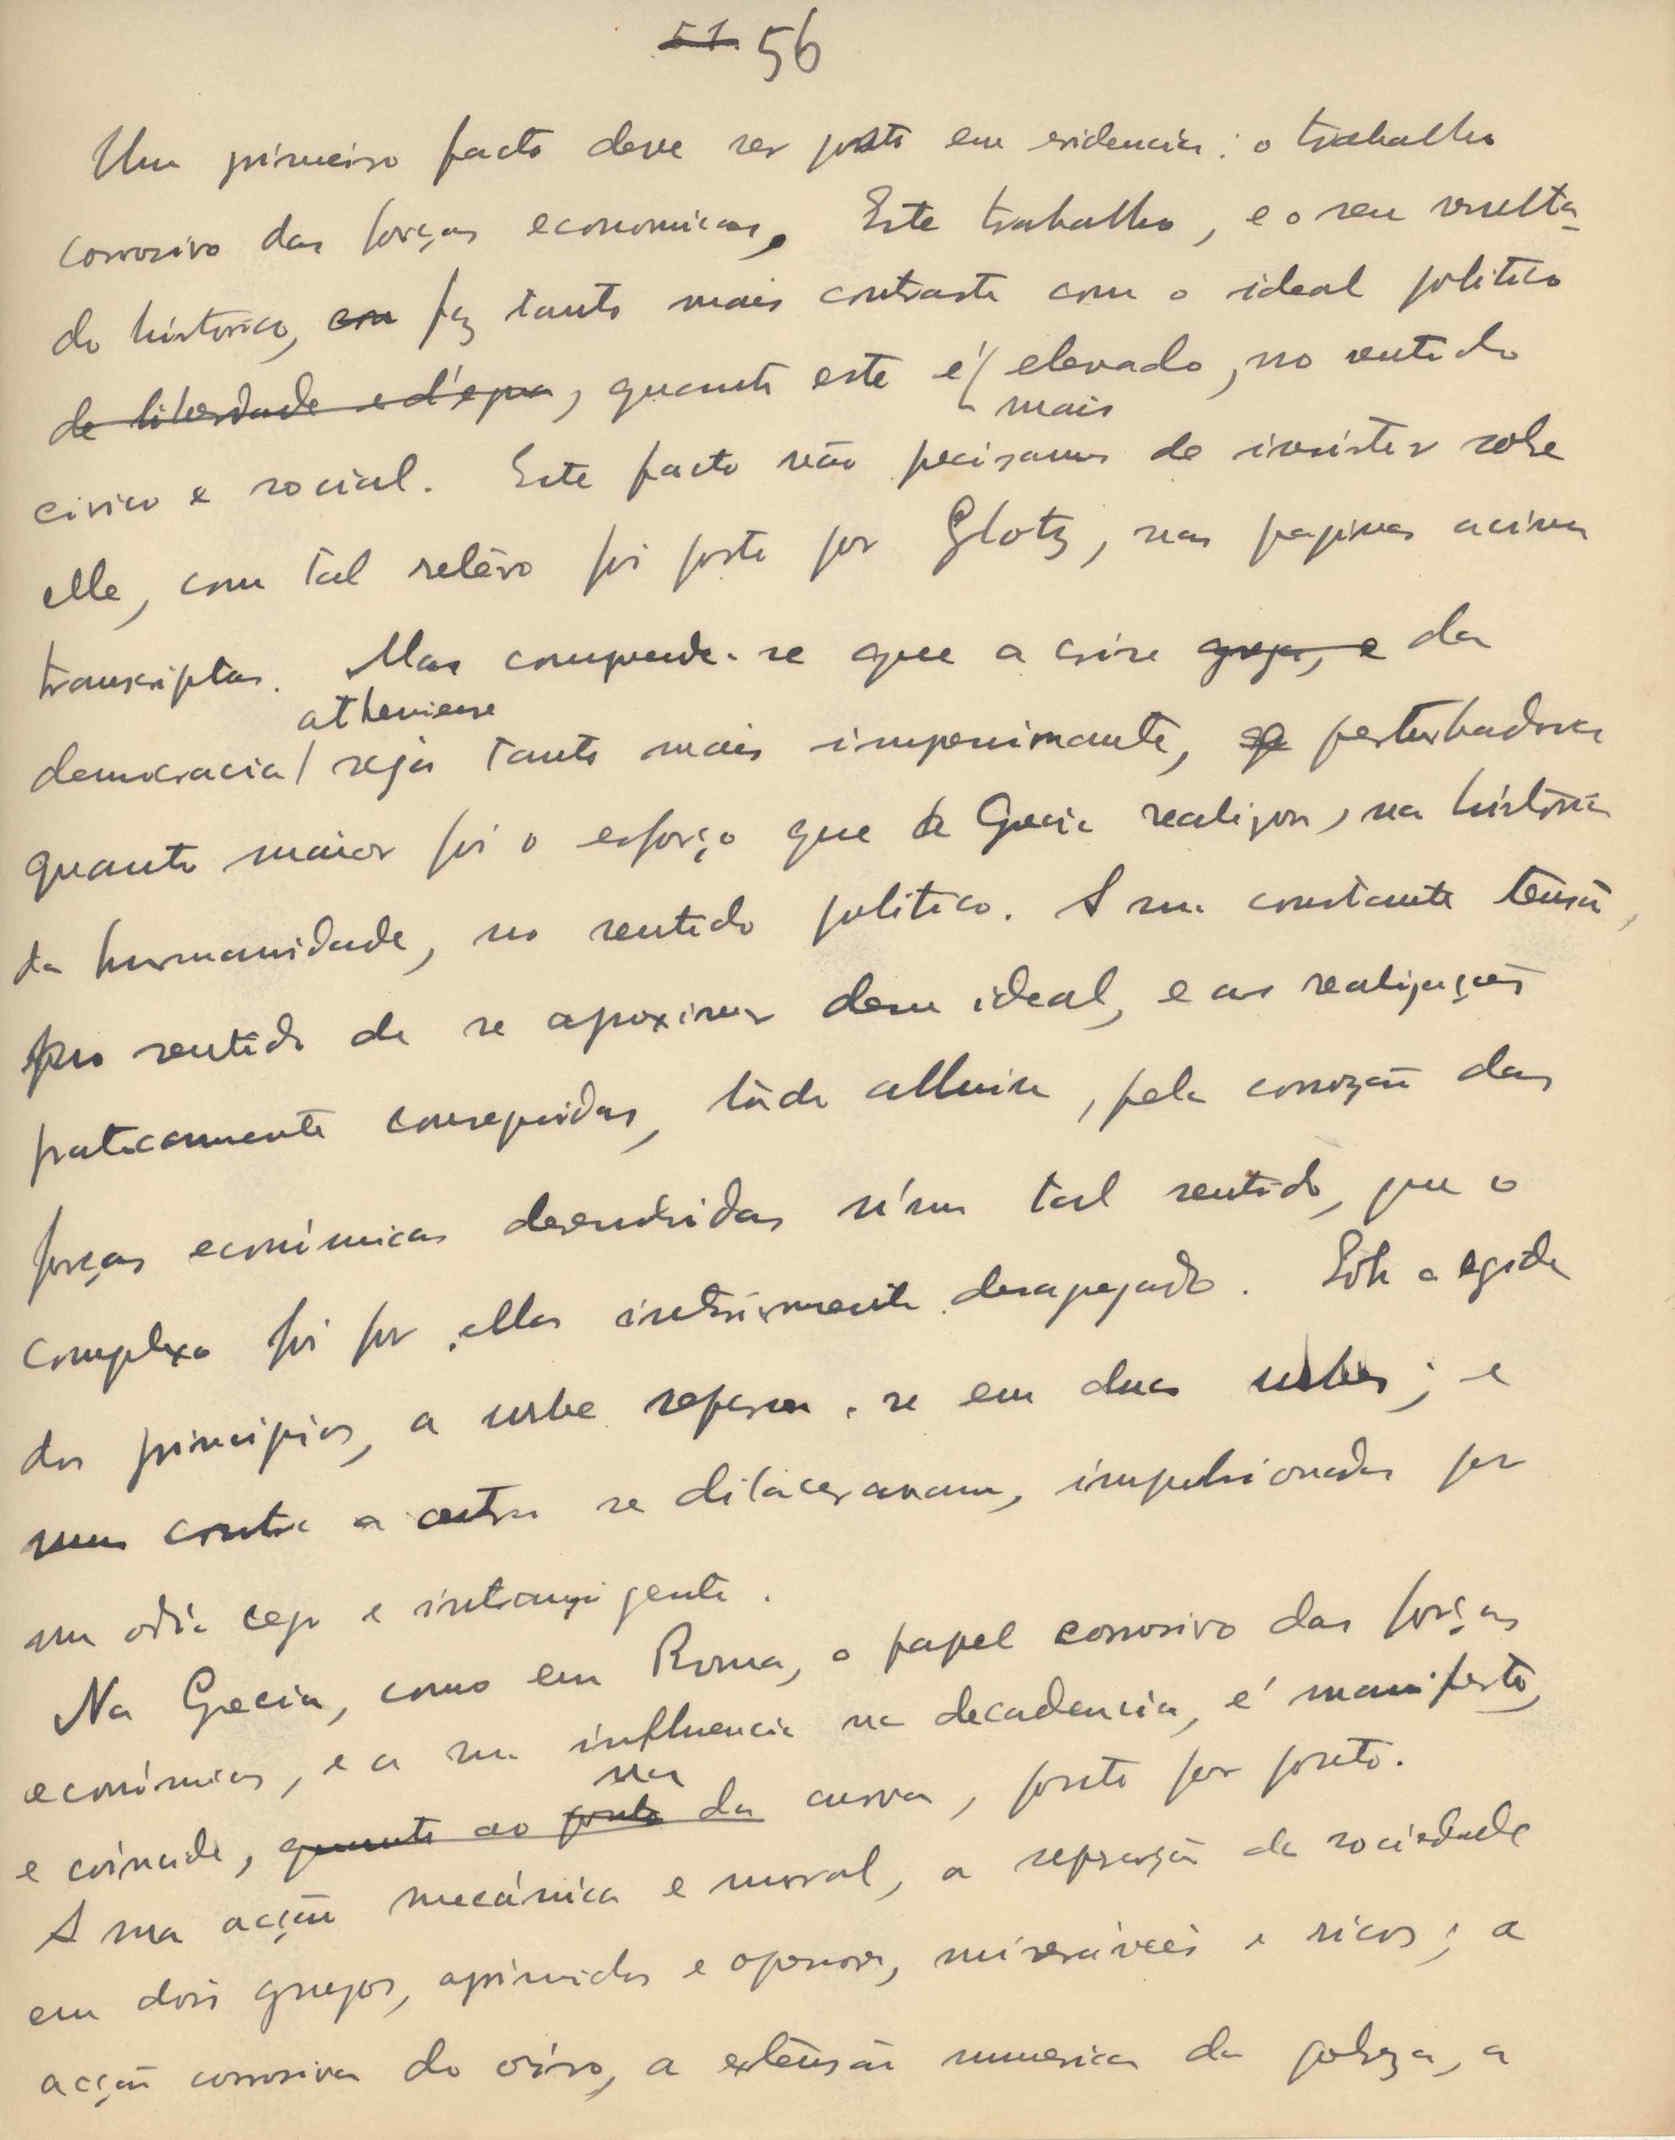 51. 56
Um primeiro facto deve ser posto em evidencia: o trabalho
corrosivo das forças economicas. Este trabalho, e o seu resulta-
do historico, em faz tanto mais contraste com o ideal politico
de liberdade e d'epoca, quanto este é elevado, no sentido
mais
civico e social. Este facto não precisamos de insistir sobre
elle, com tal relêvo foi posto por Glotz, nas paginas acima
transcriptas. Mas comprende-se que a crise grega, e da
atheniense
democracia seja tanto mais impressionante, e perturbadora
quanto maior foi o esforço que a Grecia realizou, na história
da humanidade, no sentido politico. A sua constante tensão,
no sentido de se aproximar dum ideal, e as realizações
praticamente conseguidas, tudo alluiu, pela corrozão das
forças económicas desenvolvidas n'um tal sentido, que o
complexo foi por ellas inteiramente desagregado. Sob a egide
dos principios, a urbe separou-se em duas urbes; e
uma contra a outra se dilaceraram, impulsionadas por
um odio cego e intransigente.
Na Grecia, como em Roma, o papel corrosivo das forças
económicas, e a sua influencia na decadencia, é manifesto,
sua
e coincide, quanto ao ponto da curva, ponto por ponto.
A sua acção mecánica e moral, a separação da sociedade
em dois grupos, oprimidos e opressores, miseráveis e ricos; a
acção corrosiva do oiro, a extensão numerica da pobreza, a